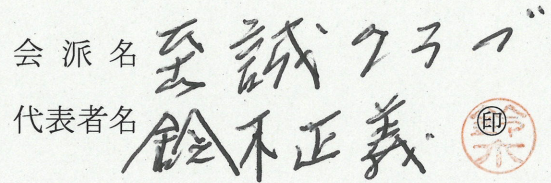 会派名 至誠クラブ
代表者名 鈴木正義 ㊞ 鈴木